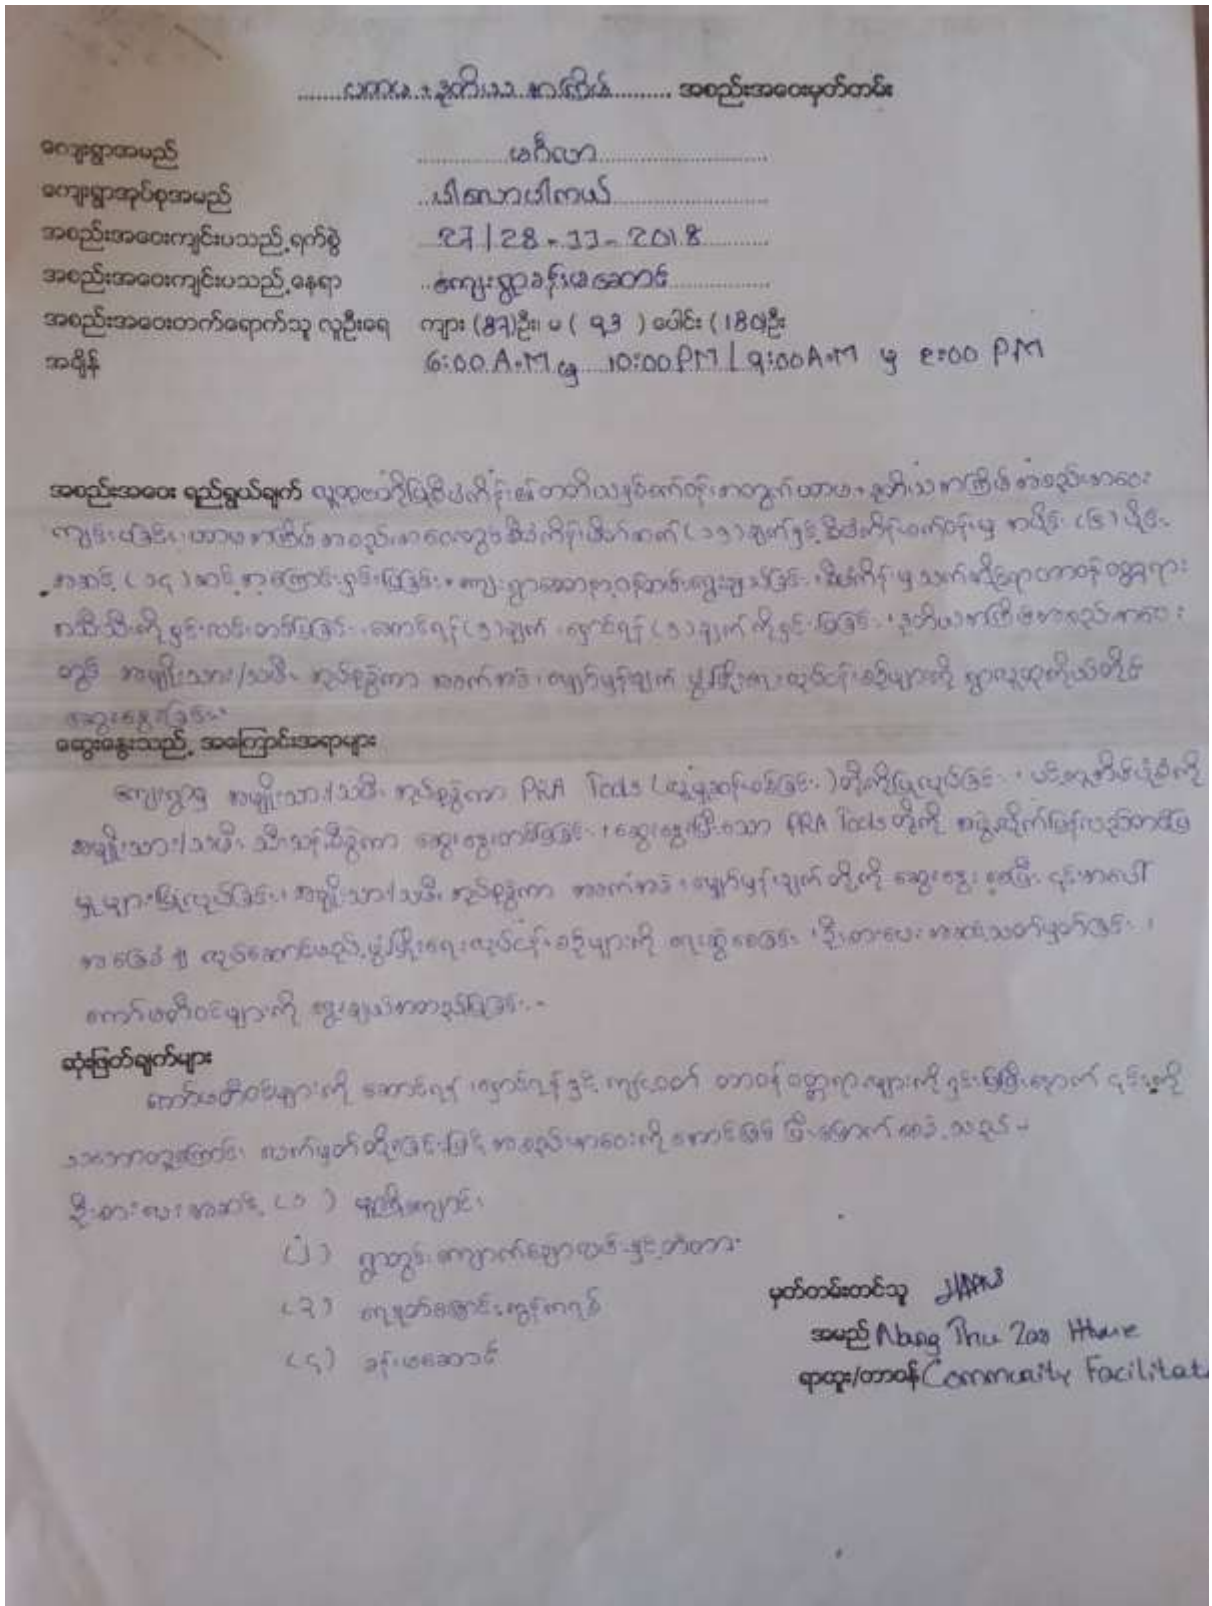 ပထမ + ဒုတိယ အကြိမ် အစည်းအဝေးမှတ်တမ်း
ကျေးရွာအမည် မင်္ဂလာ
ကျေးရွာအုပ်စုအမည် ပါလောပါကယ်
အစည်းအဝေးကျင်းပသည့်ရက်စွဲ 27/28-11-2018
အစည်းအဝေးကျင်းပသည့်နေရာ ကျေးရွာခန်းမဆောင်
အစည်းအဝေးတက်ရောက်သူ လူဦးရေ ကျား (87)ဦး၊ မ ( 93 ) ပေါင်း (180)ဦး
အချိန် 6:00 A.M မှ 10:00 PM / 9:00 A.M မှ 2:00 PM
အစည်းအဝေး ရည်ရွယ်ချက် လူထုဗဟိုပြုစီမံကိန်း၏ တတိယနှစ်စက်ဝန်းအတွက် ပထမ + ဒုတိယအကြိမ်အစည်းအဝေး
ကျင်းပခြင်း၊ ပထမအကြိမ်အစည်းအဝေးတွင် စီမံကိန်း ( ၁၁ ) ချက်နှင့် စီမံကိန်းစက်ဝန်းမှ အပိုင်း ( ၆ ) ပိုင်း
အဆင့် ( ၁၄ ) ဆင့် အကြောင်းရှင်းပြခြင်း၊ ကျေးရွာစေတနာ့ဝန်ထမ်းရွေးချယ်ခြင်း၊ စီမံကိန်းမှ သက်ဆိုင်ရာတာဝန်ဝတ္တရား
အသီးသီးကို ရှင်းလင်းတင်ပြခြင်း၊ ဆောင်ရန် (၁) ချက်၊ ရှောင်ရန် (၁) ချက်ကိုရှင်းပြခြင်း၊ ဒုတိယအကြိမ်အစည်းအဝေး
တွင် အမျိုးသား/သမီး အုပ်စုခွဲကာ အခက်အခဲ၊ မျှော်မှန်းချက် ဖွံ့ဖြိုးရေးလုပ်ငန်းစဉ်များကို ရွာလူထုကိုယ်တိုင်
ဆွေးနွေးခြင်း၊
ဆွေးနွေးသည့် အကြောင်းအရာများ
ကျေးရွာမှ အမျိုးသား/သမီး အုပ်စုခွဲကာ PRA Tools တို့ကိုပြုလုပ်ခြင်း၊
အမျိုးသား/သမီး သီးသန့်စီခွဲကာ ဆွေးနွေးတင်ပြခြင်း၊ ဆွေးနွေးပြီးသော PRA Tools တို့ကို ပြန်လည်တင်ပြ
မှုများပြုလုပ်ခြင်း၊ အမျိုးသား/သမီး အုပ်စုခွဲကာ အခက်အခဲ၊ မျှော်မှန်းချက်တို့ကို ဆွေးနွေးစေပြီး ၎င်းအပေါ်
အခြေခံ၍ လုပ်ဆောင်မည့် ဖွံ့ဖြိုးရေးလုပ်ငန်းစဉ်များကို ရေးဆွဲစေခြင်း၊ ဦးစားပေးအဆင့်သတ်မှတ်ခြင်း၊
ကော်မတီဝင်များကို ရွေးချယ်အတည်ပြုခြင်း။
ဆုံးဖြတ်ချက်များ
ကော်မတီဝင်များကို ဆောင်ရန်၊ ရှောင်ရန်နှင့် ကျင့်ဝတ် တာဝန် ဝတ္တရားများကို ရှင်းပြပြီးနောက် ၎င်းတို့ကို
သဘောတူကြောင်း လက်မှတ်ထိုးခြင်းဖြင့် အစည်းအဝေးကို အောင်မြင်ပြီးမြောက်စေခဲ့သည်။
ဦးစားပေးအဆင့် ( ၁ ) မူကြိုကျောင်း
( ၂ ) ရွာတွင်းကျောက်ချောလမ်းနှင့်တံတား
( ၃ )
( ၄ ) ခန်းမဆောင်
မှတ်တမ်းတင်သူ
အမည် Nang Thu Zar Htwe
ရာထူး/တာဝန် Community Facilitat